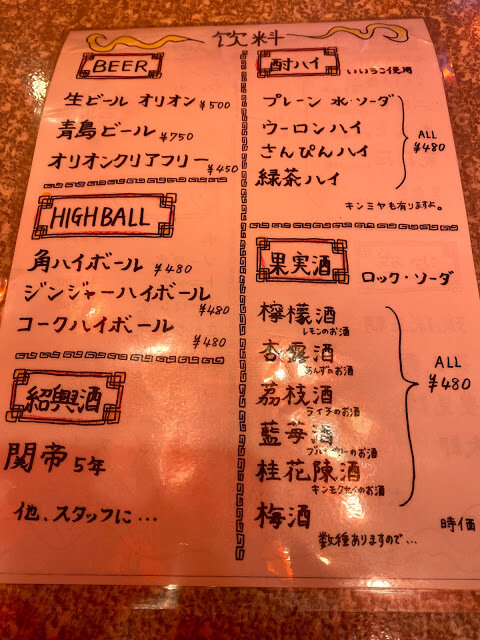 饮料
BEER
生ビール オリオン ¥500
青島ビール ¥750
オリオンクリアフリー ¥450
HIGHBALL
角ハイボール ¥480
ジンジャーハイボール ¥480
コークハイボール ¥480
紹興酒
関帝 5年
他、スタッフに…
酎ハイ いいちこ使用
プレーン 水・ソーダ
ウーロンハイ
さんぴんハイ
緑茶ハイ
ALL ¥480
キンミヤも有りますよ。
果実酒 ロック・ソーダ
檸檬酒
レモンのお酒
杏露酒
あんずのお酒
茘枝酒
ライチのお酒
藍苺酒
ブルーベリーのお酒
桂花陳酒
キンモクセイのお酒
ALL ¥480
梅酒 時価
数種ありますので…